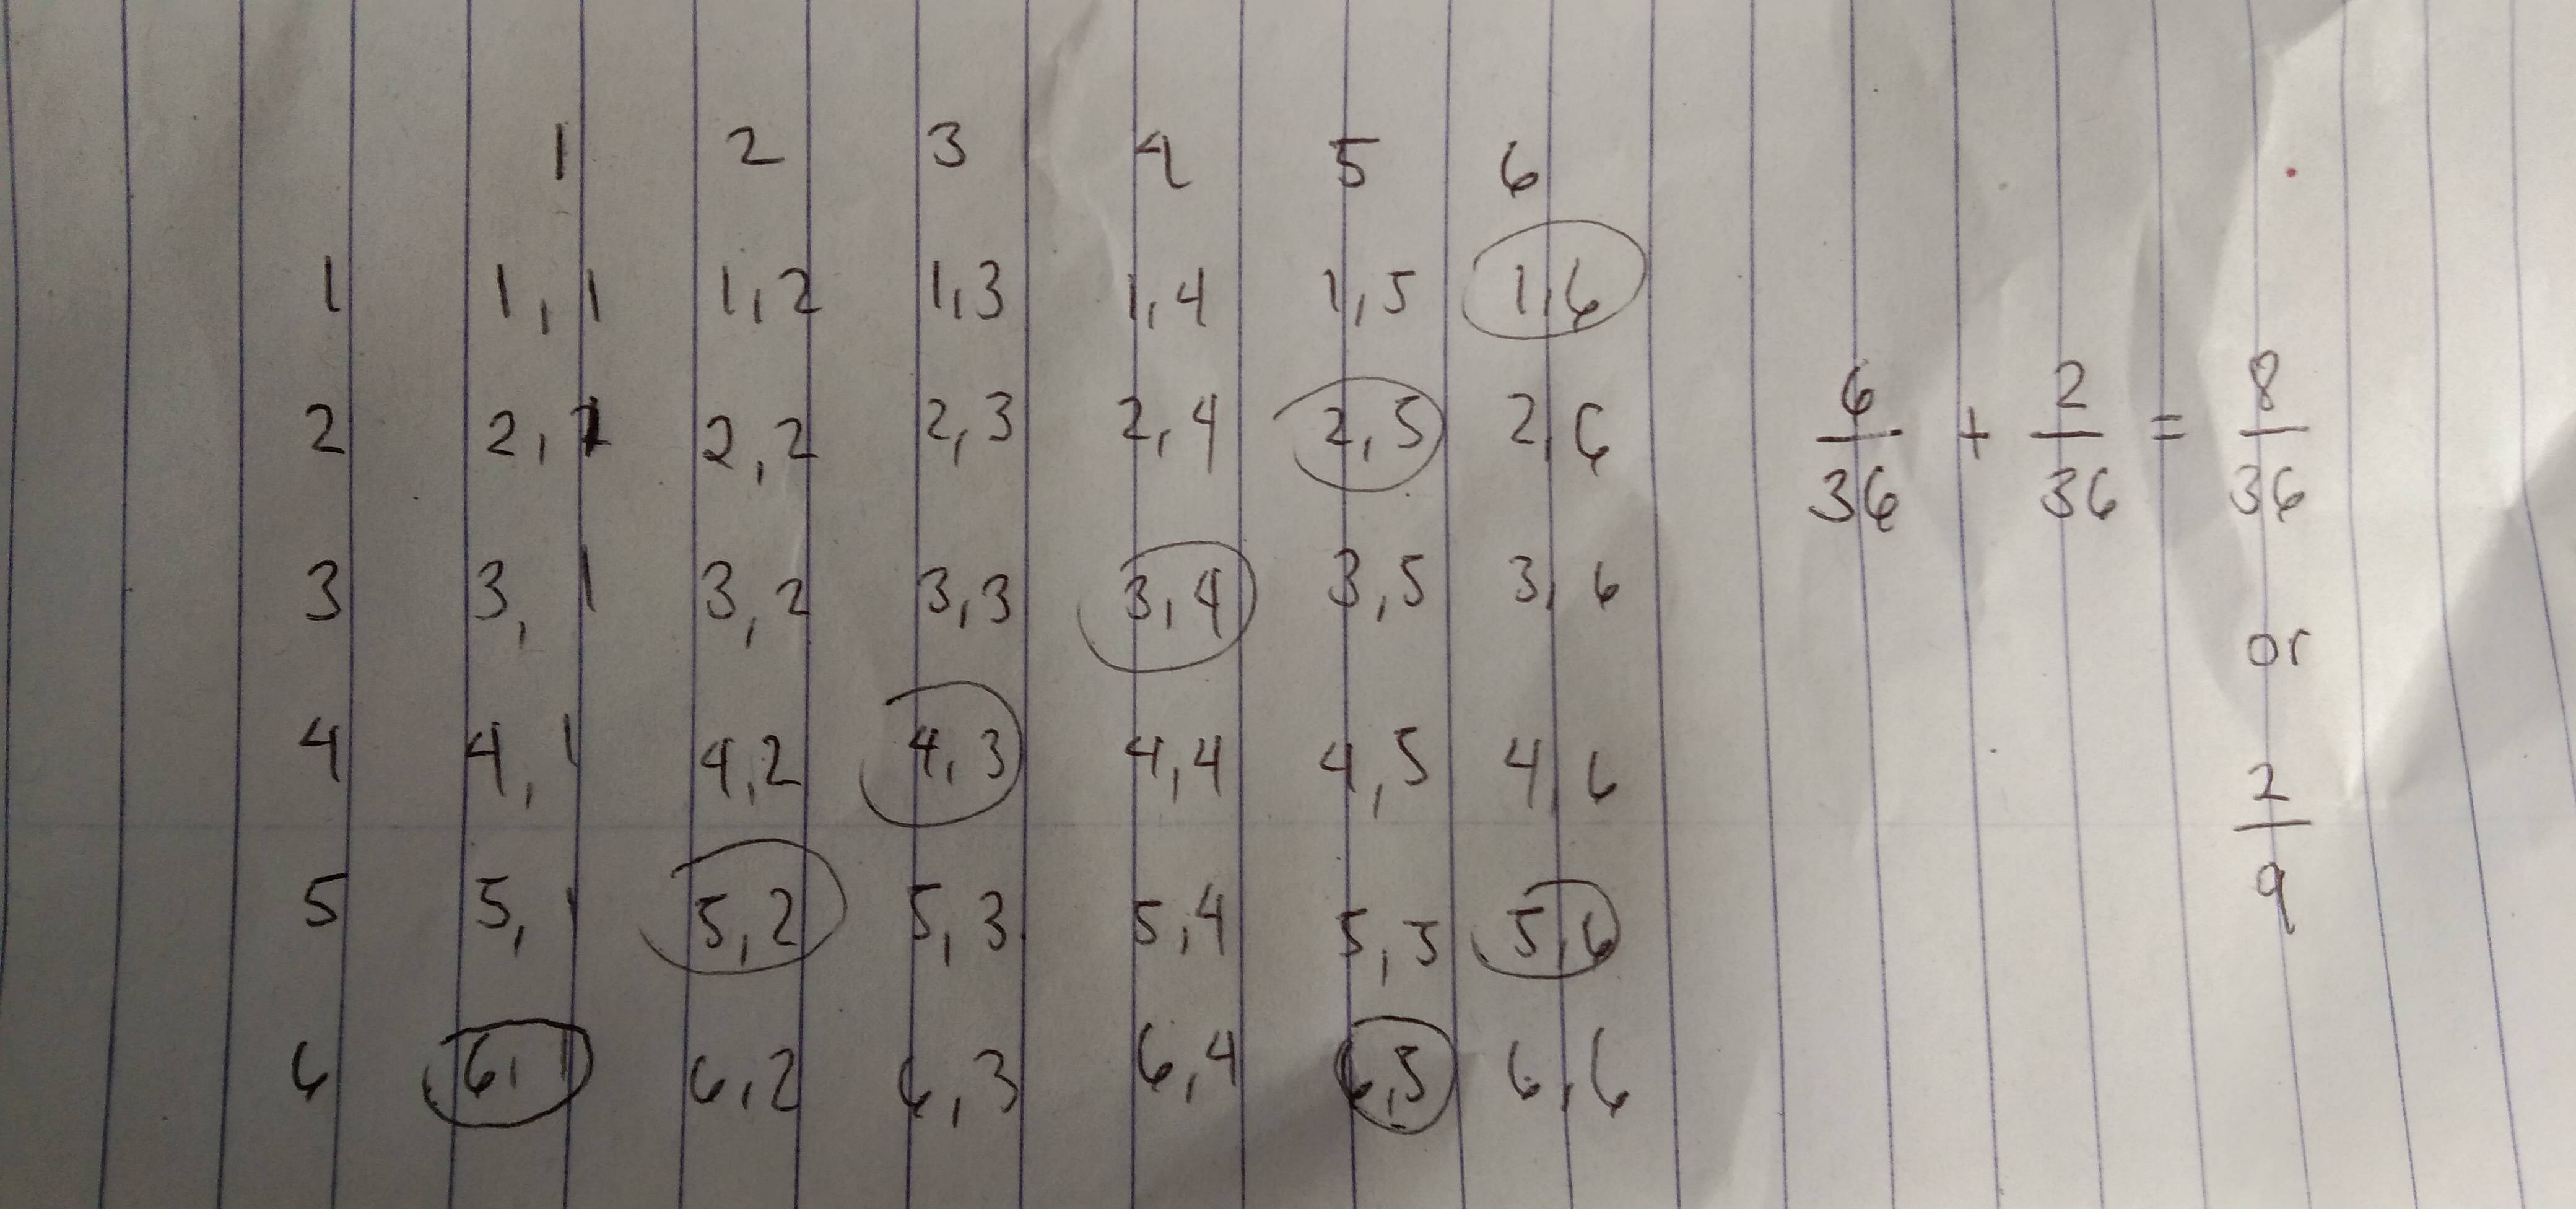 1 2 3 4 5 6
1 1,1 1,2 1,3 1,4 1,5 1,6
2 2,1 2,2 2,3 2,4 2,5 2,6
3 3,1 3,2 3,3 3,4 3,5 3,6
4 4,1 4,2 4,3 4,4 4,5 4,6
5 5,1 5,2 5,3 5,4 5,5 5,6
6 6,1 6,2 6,3 6,4 6,5 6,6
6/36 + 2/36 = 8/36
or
2/9